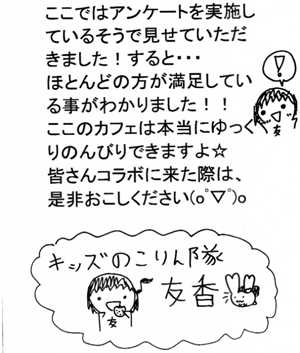 ここではアンケートを実施し
ているそうで見せていただ
きました！すると・・・
ほとんどの方が満足してい
る事がわかりました！！
！
友
ここのカフェは本当にゆっく
りのんびりできますよ☆
皆さんコラボに来た際は、
是非おこしください(o゚▽゚)o
キッズのこりん隊
友香
友